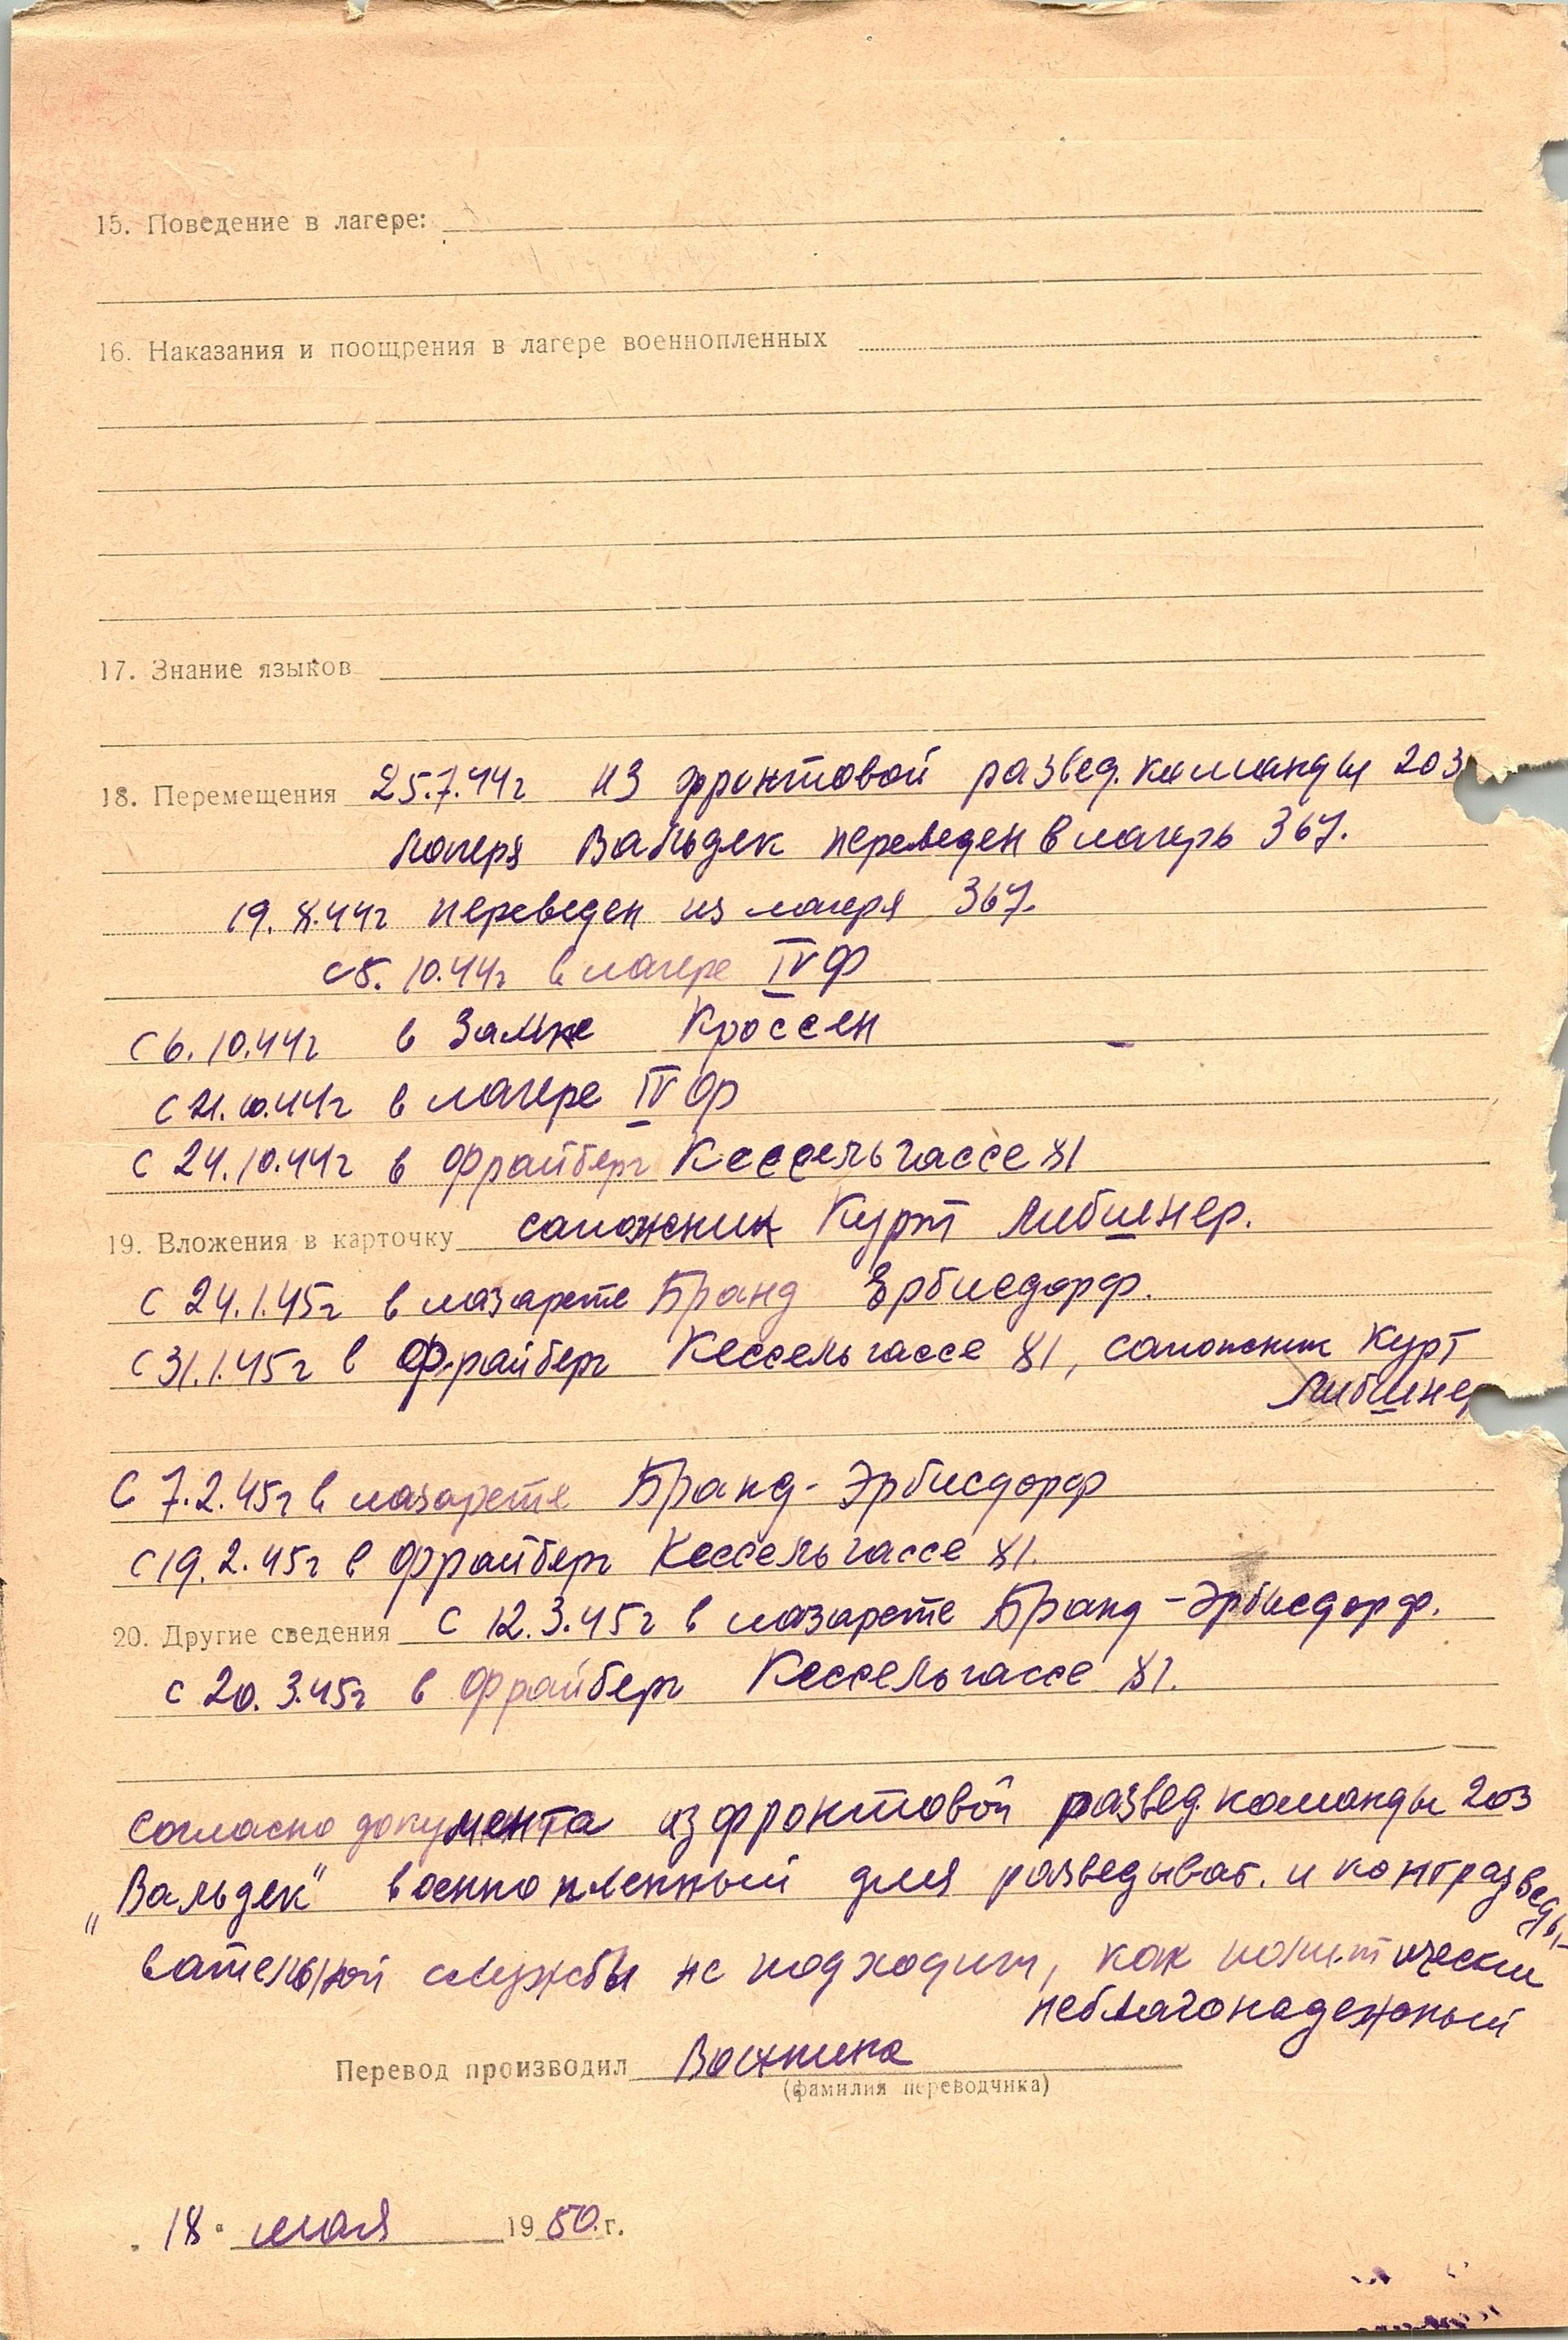 15. Поведение в лагере:
16. Наказания и поощрения в лагере военнопленных
17. Знание языков
18. Перемещения 25.7.44г из фронтовой развед. команды 203
лагеря Вальдек переведен в лагерь 367.
19.8.44г переведен из лагеря 367.
с 5.10.44г в лагере IV Ф
с 6.10.44г в замке Кроссен
с 21.10.44г в лагере IV Ф
с 24.10.44г в Фрайберг Кессельгассе 81
19. Вложения в карточку сапожник Курт Либшнер.
с 24.1.45г в лазарете Бранд Эрбисдорф.
с 31.1.45г в Фрайберг Кессельгассе 81, сапожник Курт
Либшнер
С 7.2.45г в лазарете Бранд-Эрбисдорф
с 19.2.45г в Фрайберг Кессельгассе 81.
20. Другие сведения с 12.3.45г в лазарете Бранд-Эрбисдорф.
с 20.3.45г в Фрайберг Кессельгассе 81.
Согласно документа из фронтовой развед. команды 203
„Вальдек" военнопленный для разведыват. и контрразведы-
вательной службы не подходит, как политически
неблагонадежный
Перевод производил
(фамилия переводчика)
„18" мая 1950 г.